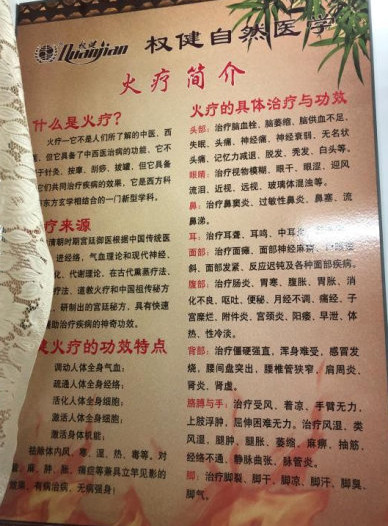 权健
Quanjian
权健自然医学
火疗简介
什么是火疗?
火疗一它不是人们所了解的中医、西
医,但它具备了中西医治病的功能,它不
于针灸、按摩、刮痧、拔罐,但它具备
它们共同治疗疾病的效果,它是西方科
东方玄学相结合的一门新型学科。
疗来源
清朝时期宫廷御医根据中国传统医
进经络,气血理论和现代神经、
化、代谢理论,在古代熏蒸疗法、
疗法、道教火疗和中国祖传秘方
研制出的宫廷秘方,具有快速
辅助治疗疾病的神奇功效。
火疗的功效特点
调动人体全身气血;
疏通人体全身经络;
活化人体全身细胞;
激活人体全身细胞;
激活身体机能;
祛除体内风、寒、湿、热、毒等,对
麻、肿、胀、痛症等兼具立竿见影的
效果,有病治病、无病强身!
火疗的具体治疗与功效
头部:治疗脑血栓、脑萎缩、脑供血不足、
失眠、头痛、神经痛、神经衰弱、无名状
头痛、记忆力减退、脱发、秃发、白头等。
眼睛:治疗视物模糊、眼干、眼涩、迎风
流泪、近视、远视、玻璃体混浊等。
鼻:治疗鼻窦炎、过敏性鼻炎、鼻塞、流
鼻涕。
耳:治疗耳聋、耳鸣、中耳炎
面部:治疗面瘫、面部神经麻
斜、面部发紧、反应迟钝及各种面部疾病。
腹部:治疗肠炎、胃寒、腹胀、胃胀、消
化不良、呕吐、便秘、月经不调、痛经、子
宫糜烂、附件炎、宫颈炎、阳痿、早泄、体
热、性冷淡。
背部:治疗僵硬强直、浑身难受、感冒发
烧、腰间盘突出、腰椎管狭窄、肩周炎、
肾炎、肾虚。
胳膊与手:治疗受风、着凉、手臂无力、
上肢浮肿、屈伸困难无力。治疗风湿、类
风湿、腿肿、腿胀、萎缩、麻痹、抽筋、
经络不通、静脉曲张、脉管炎。
脚:治疗脚裂、脚干、脚凉、脚汗、脚臭、
脚气。